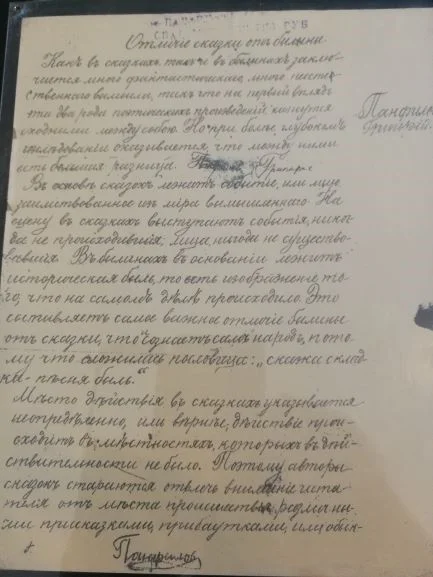 Отличіе сказки отъ былины
Какъ въ сказкахъ, такъ и въ былинахъ заклю-
чается много фантастическаго, много неесте-
ственнаго вымысла, такъ что на первый взглядъ
эти два рода поэтическихъ произведеній кажутся
сходными между собою. Но при болѣе глубокомъ
изслѣдованіи оказывается, что между ними
есть большая разница.
Григорій
Въ основѣ сказокъ лежитъ событіе, или лицо
заимствованное изъ міра вымышленнаго. На
сцену въ сказкахъ выступаютъ событія, никог-
да не происходившія, лица, никогда не существо-
вавшія. Въ былинахъ въ основаніи лежитъ
историческая быль, то есть изображеніе то-
го, что на самомъ дѣлѣ происходило. Это
составляетъ самое важное отличіе былины
отъ сказки, что созналъ самъ народъ, пото-
му что сложилась пословица: „сказка склад-
ка - пѣсня быль."
Мѣсто дѣйствія въ сказкахъ указывается
неопредѣленно, или вѣрнѣе, дѣйствіе прои-
сходитъ въ мѣстностяхъ, которыхъ въ дѣй-
ствительности не было. Поэтому авторы
сказокъ стараются отвлечь вниманіе чита-
теля отъ мѣста происшествія различны-
ми присказками, прибаутками, или
Панфилов